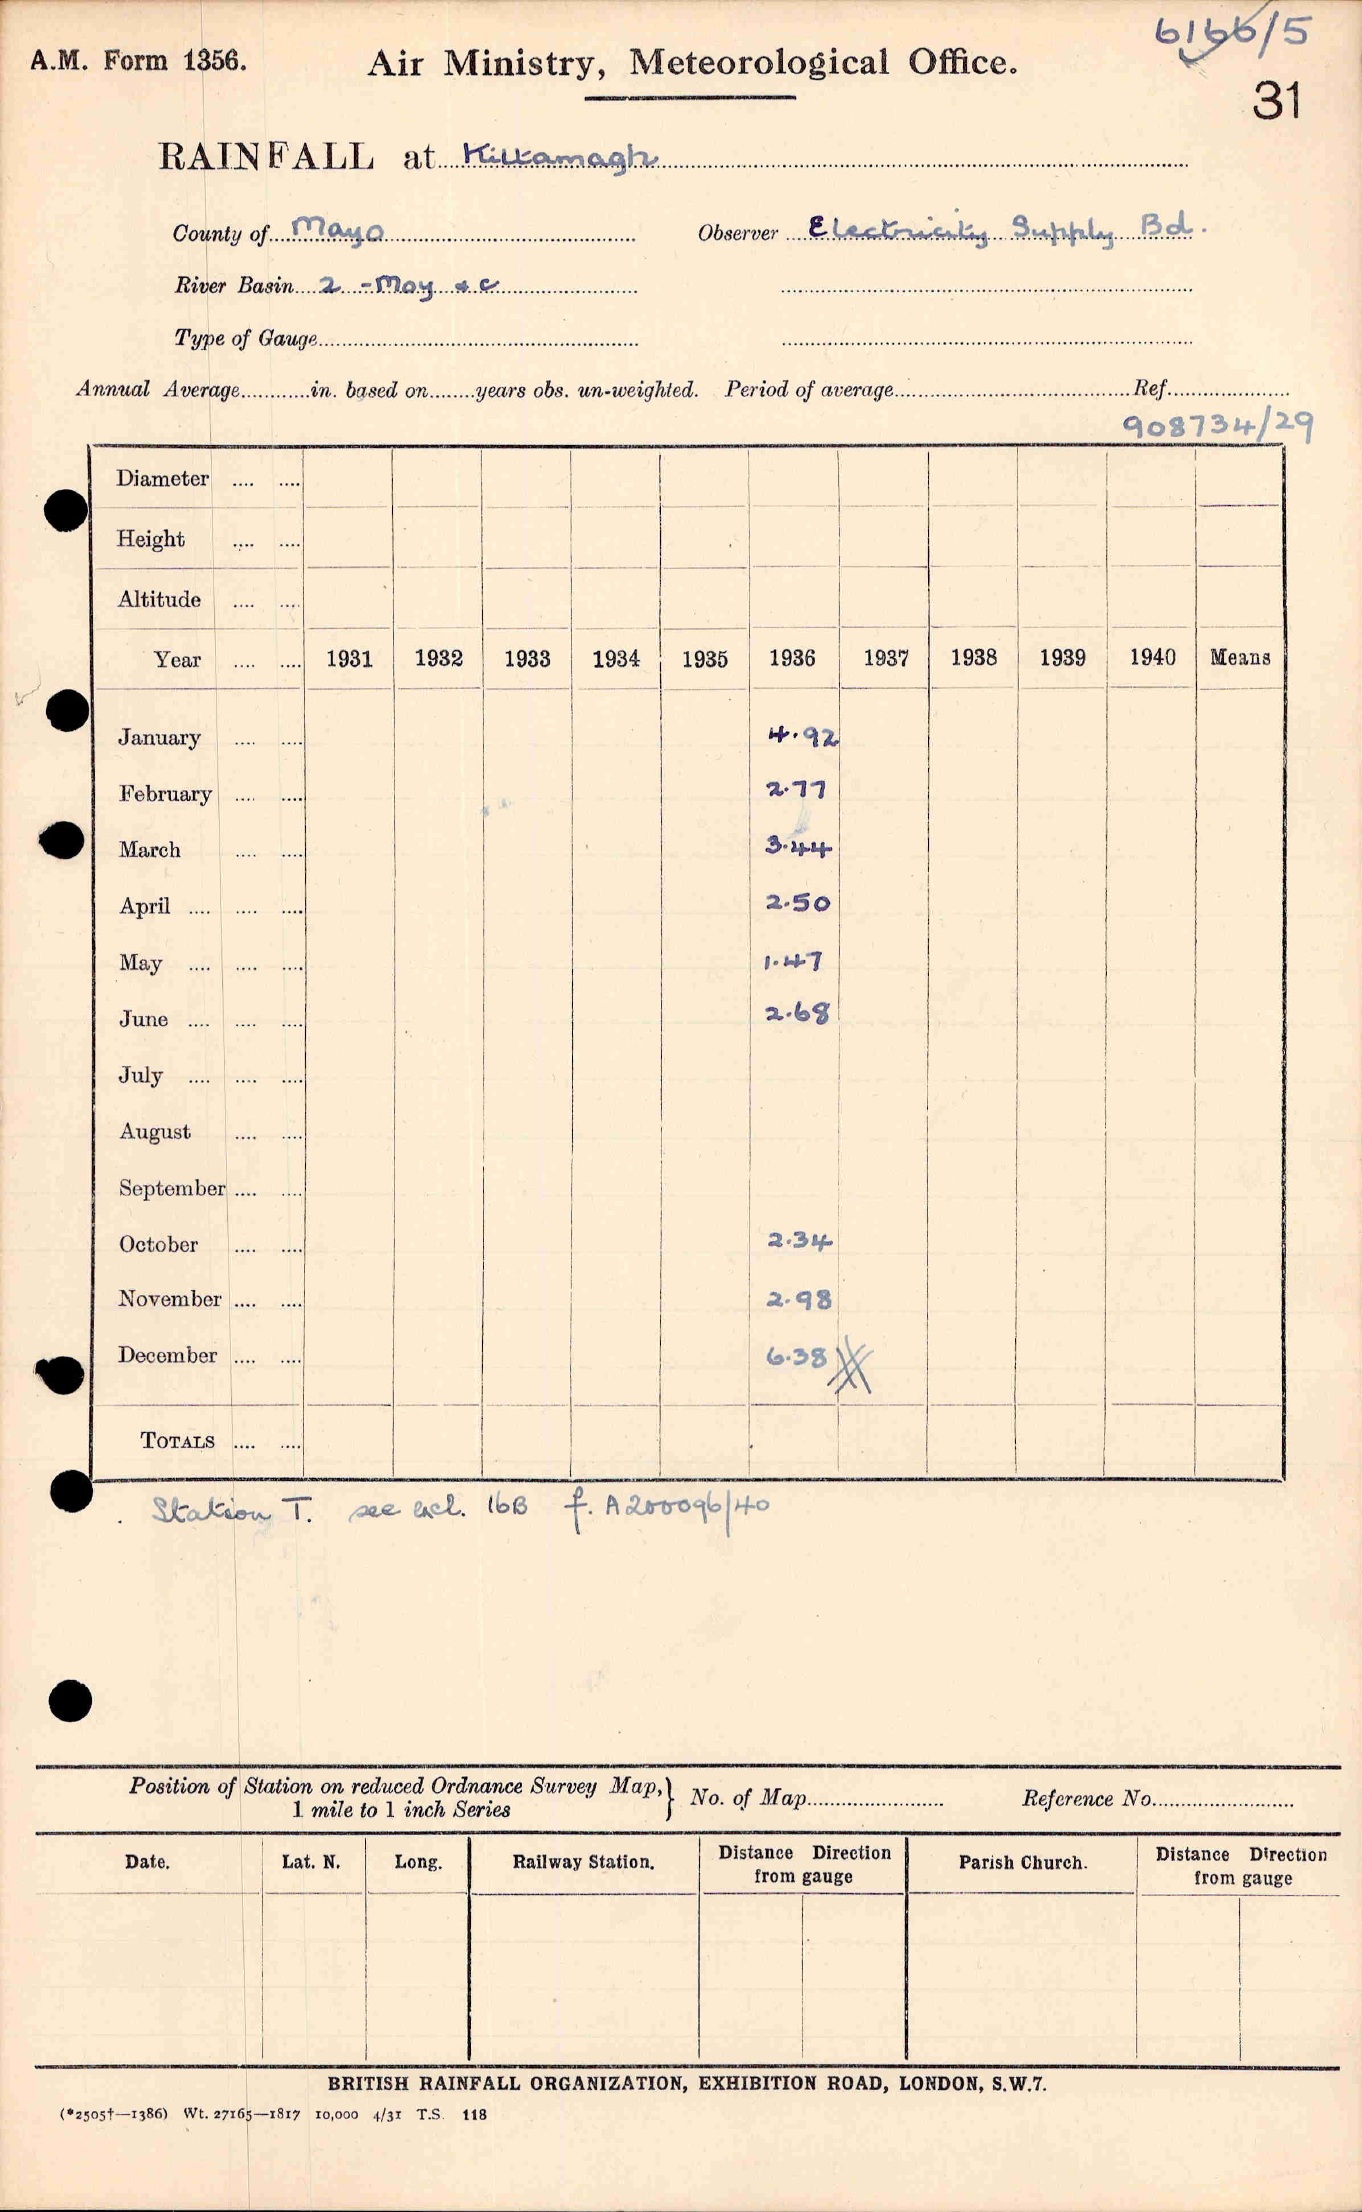 6166/5
A.M. Form 1356.
Air Ministry, Meteorological Office.
31
RAINFALL at Kiltamagh
County of Mayo
Observer Electricity Supply Bd.
River Basin 2 - Moy &c
Type of Gauge
Annual Average in. based on years obs. un-weighted. Period of average Ref.
908734/29
Diameter
Height
Altitude
Year 1931 1932 1933 1934 1935 1936 1937 1938 1939 1940 Means
January 4.92
February 2.77
March 3.44
April 2.50
May 1.47
June 2.68
July
August
September
October 2.34
November 2.98
December 6.38
TOTALS
Station T. see encl. 16B f. A200096/40
Position of Station on reduced Ordnance Survey Map, } No. of Map Reference No.
1 mile to 1 inch Series
Date. Lat. N. Long. Railway Station. Distance Direction from gauge Parish Church. Distance Direction from gauge
BRITISH RAINFALL ORGANIZATION, EXHIBITION ROAD, LONDON, S.W.7.
(*2505†—1386) Wt. 27165—1817 10,000 4/31 T.S. 118